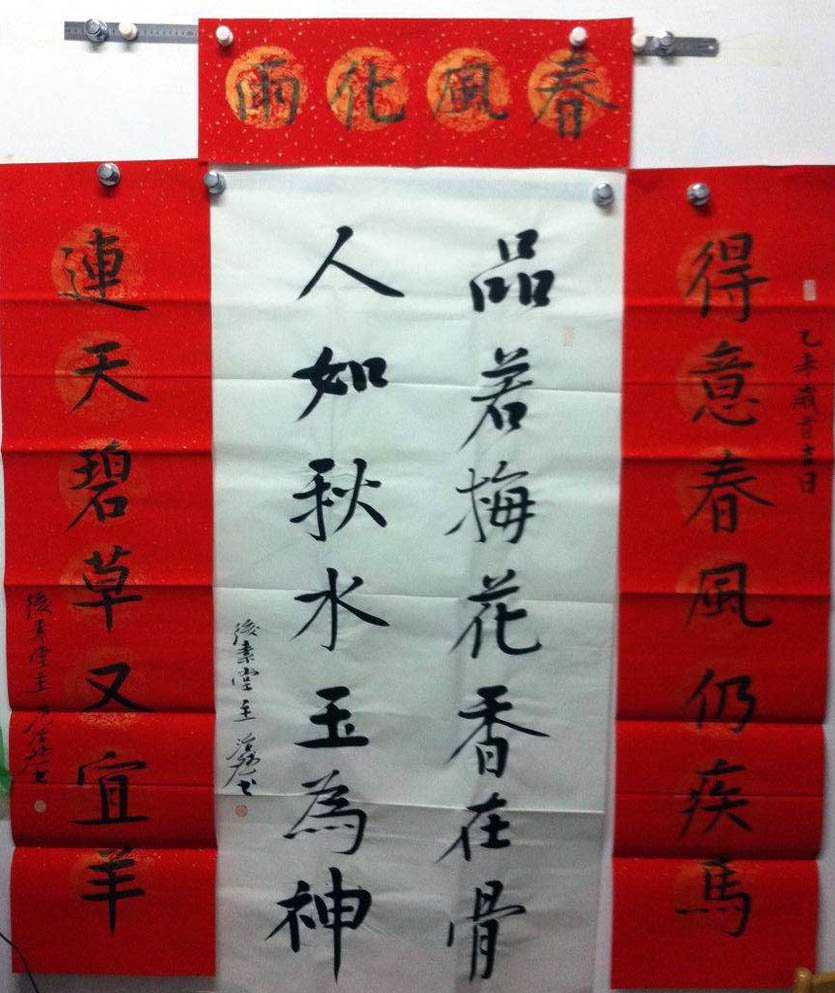 春風化雨
得意春風仍疾馬
乙未歲首吉日
品若梅花香在骨
人如秋水玉為神
後素堂主
連天碧草又宜羊
後素堂主